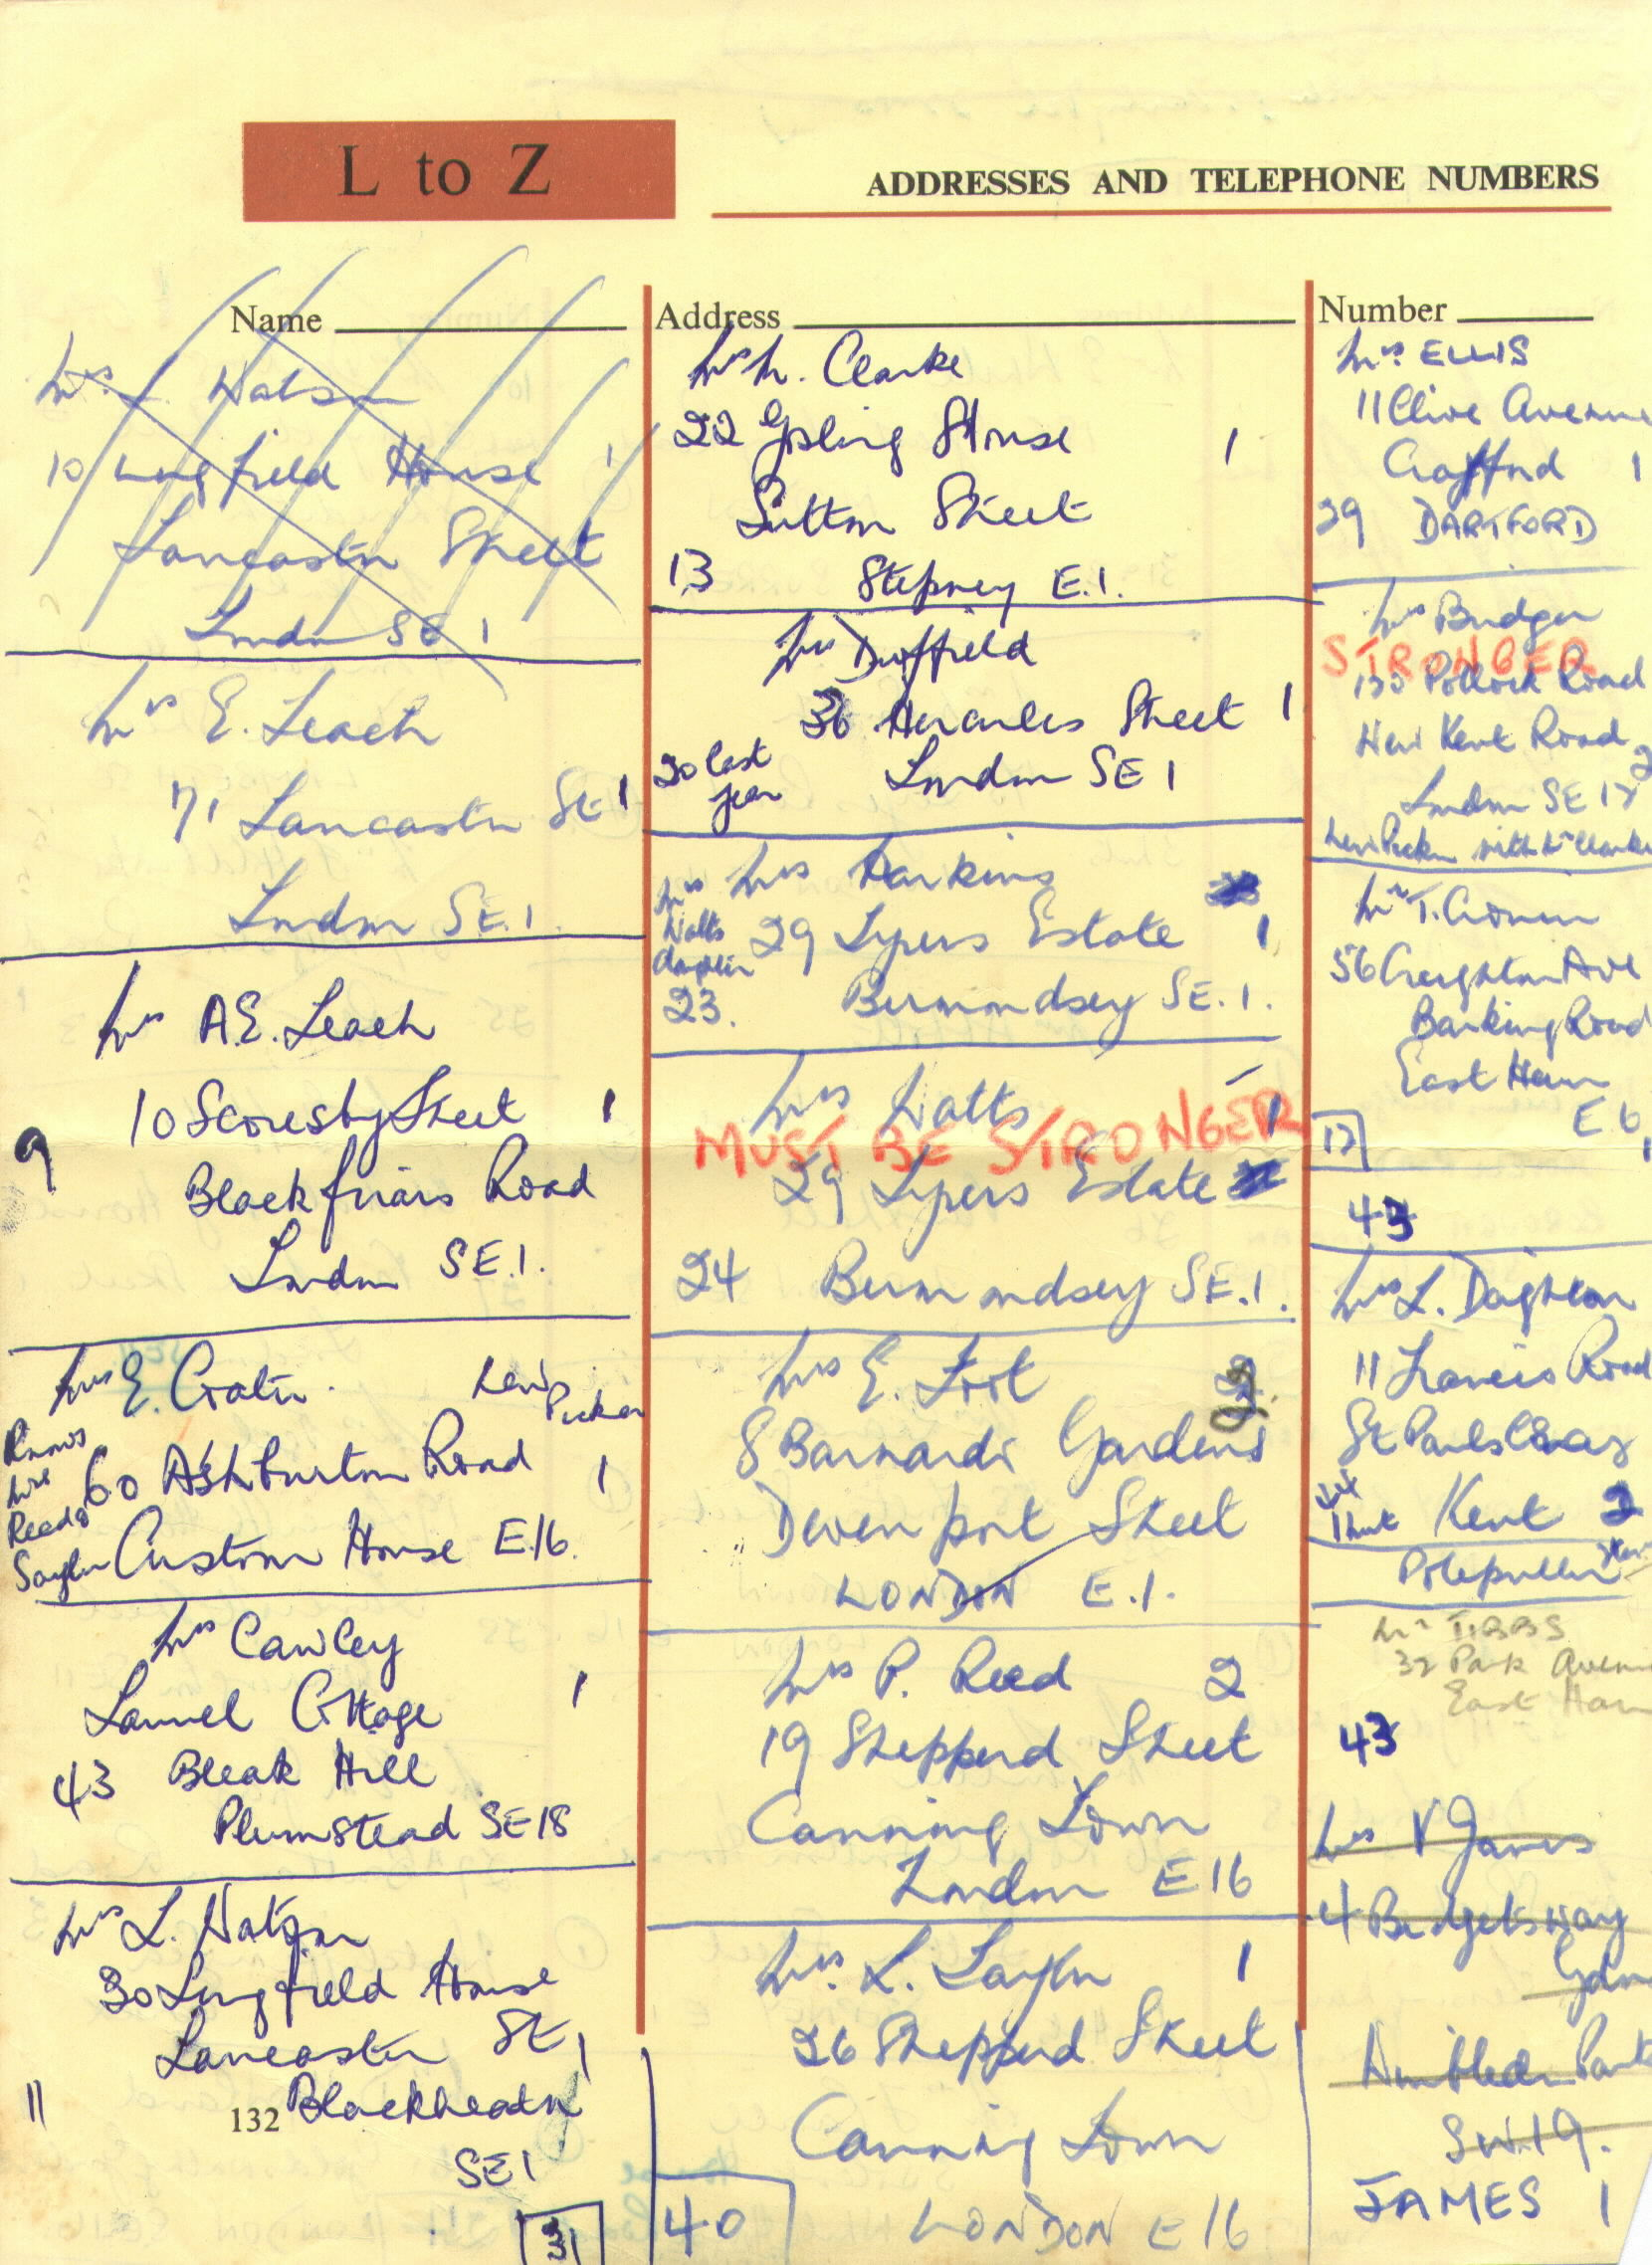 L to Z
ADDRESSES AND TELEPHONE NUMBERS
Name
Mrs Watson
10 Lingfield House 1
Lancaster Street
London SE 1
Mrs E. Leach
71 Lancaster SE 1
London SE.1.
Mrs A.E. Leach
10 Scoresby Street 1
9
Blackfriars Road
London SE.1.
Mrs E. Crater. New
Picker
Knows
60 Ashburton Road 1
Mrs
Reads
Saylor Custom House E.16.
Mrs Cawley
Laurel Cottage 1
43 Bleak Hill
Plumstead SE18
Mrs L. Watson
30 Lingfield House
Lancaster St. 1
11
132 Blackheath
SE1
31
Address
Mrs M. Clarke
22 Gosling House 1
Sutton Street
13 Stepney E.1.
Mrs Duffield
36 Hercules Street 1
20 last
year
London SE 1
Mrs Harkins
Mrs
Watts
daughter
29 Lypers Estate 1
23. Bermondsey SE.1.
Mrs Watts 1
MUST BE STRONGER
29 Lypers Estate
24 Bermondsey SE.1.
Mrs E. Foot 2
8 Barnardi Gardens
Devenport Street
LONDON E.1.
Mrs P. Reed 2
19 Shepperd Street
Canning Town
London E16
Mrs. L. Saylor 1
26 Shepperd Street
Canning Town
40 LONDON E16
Number
Mrs ELLIS
11 Clive Avenue
Crayfford 1
29 DARTFORD
Mrs Bridger
STRONGER
130 Pollock Road
New Kent Road 2
London SE 17
New Picker with Mrs Clarke
Mrs T. Cronin
56 Creighton Ave
Barking Road
East Ham
E 6
17 1
43
Mrs L. Daghlan
11 Francis Road
St Pauls Cray
Kent 2
1 hut
Polepuller
Mrs TIBBS
32 Park Avenue
East Ham
43
Mrs V James
4 Bridgets way
Gdns
Wimbledon Park
SW.19.
JAMES 1